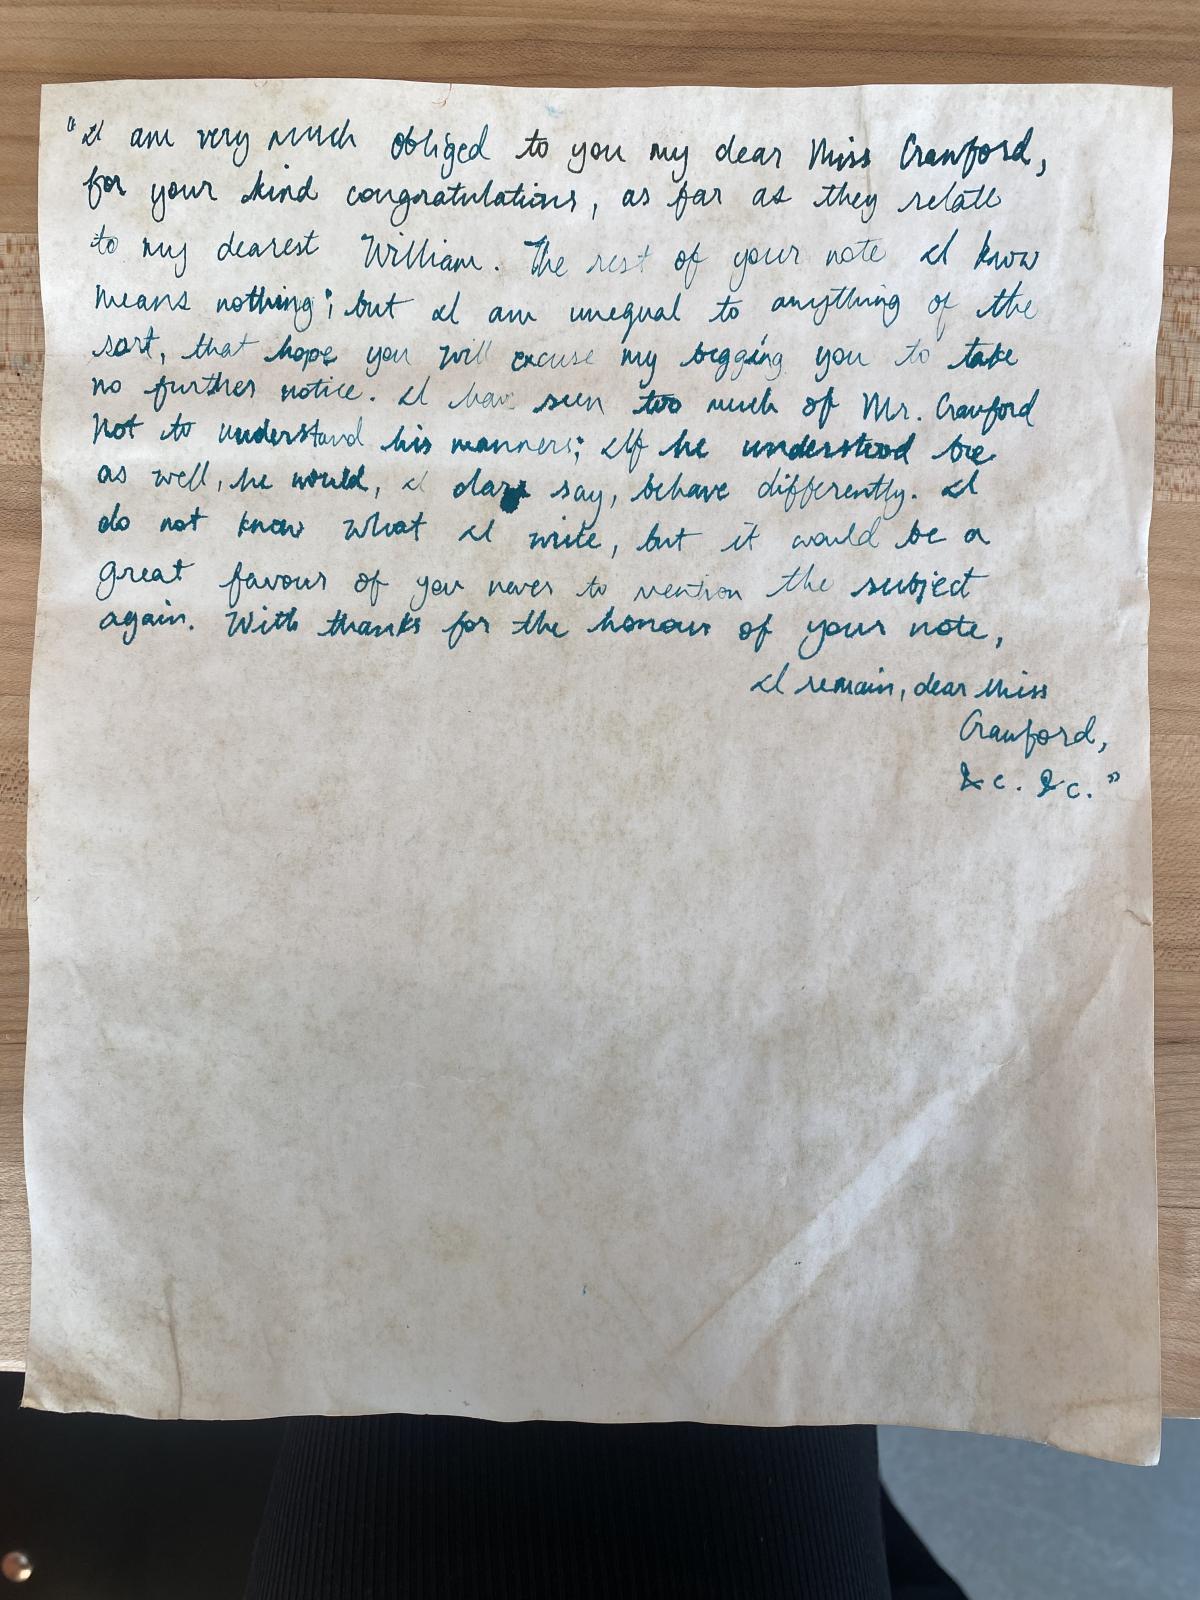 "I am very much obliged to you my dear Miss Crawford,
for your kind congratulations, as far as they relate
to my dearest William. The rest of your note I know
means nothing; but I am unequal to anything of the
sort, that hope you will excuse my begging you to take
no further notice. I have seen too much of Mr. Crawford
not to understand his manners; If he understood me
as well, he would, I dare say, behave differently. I
do not know what I write, but it would be a
great favour of you never to mention the subject
again. With thanks for the honour of your note,
I remain, dear Miss
Crawford,
&c. &c."